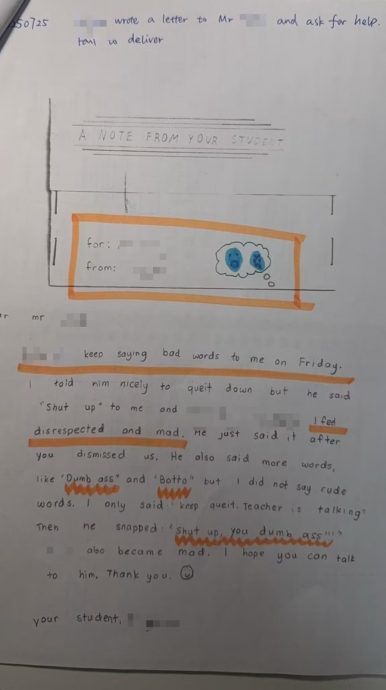 250725 wrote a letter to Mr and ask for help.
to deliver
A NOTE FROM YOUR STUDENT
for:
from:
mr
keep saying bad words to me on Friday.
I told him nicely to queit down but he said
"Shut up" to me and I feel
disrespected and mad. He just said it after
you dismissed us. He also said more words,
like "Dumb ass" and "Botto" but I did not say rude
words. I only said "keep queit. Teacher is talking"
Then he snapped: "Shut up, you dumb ass"!"
also became mad. I hope you can talk
to him. Thank you.
your student,